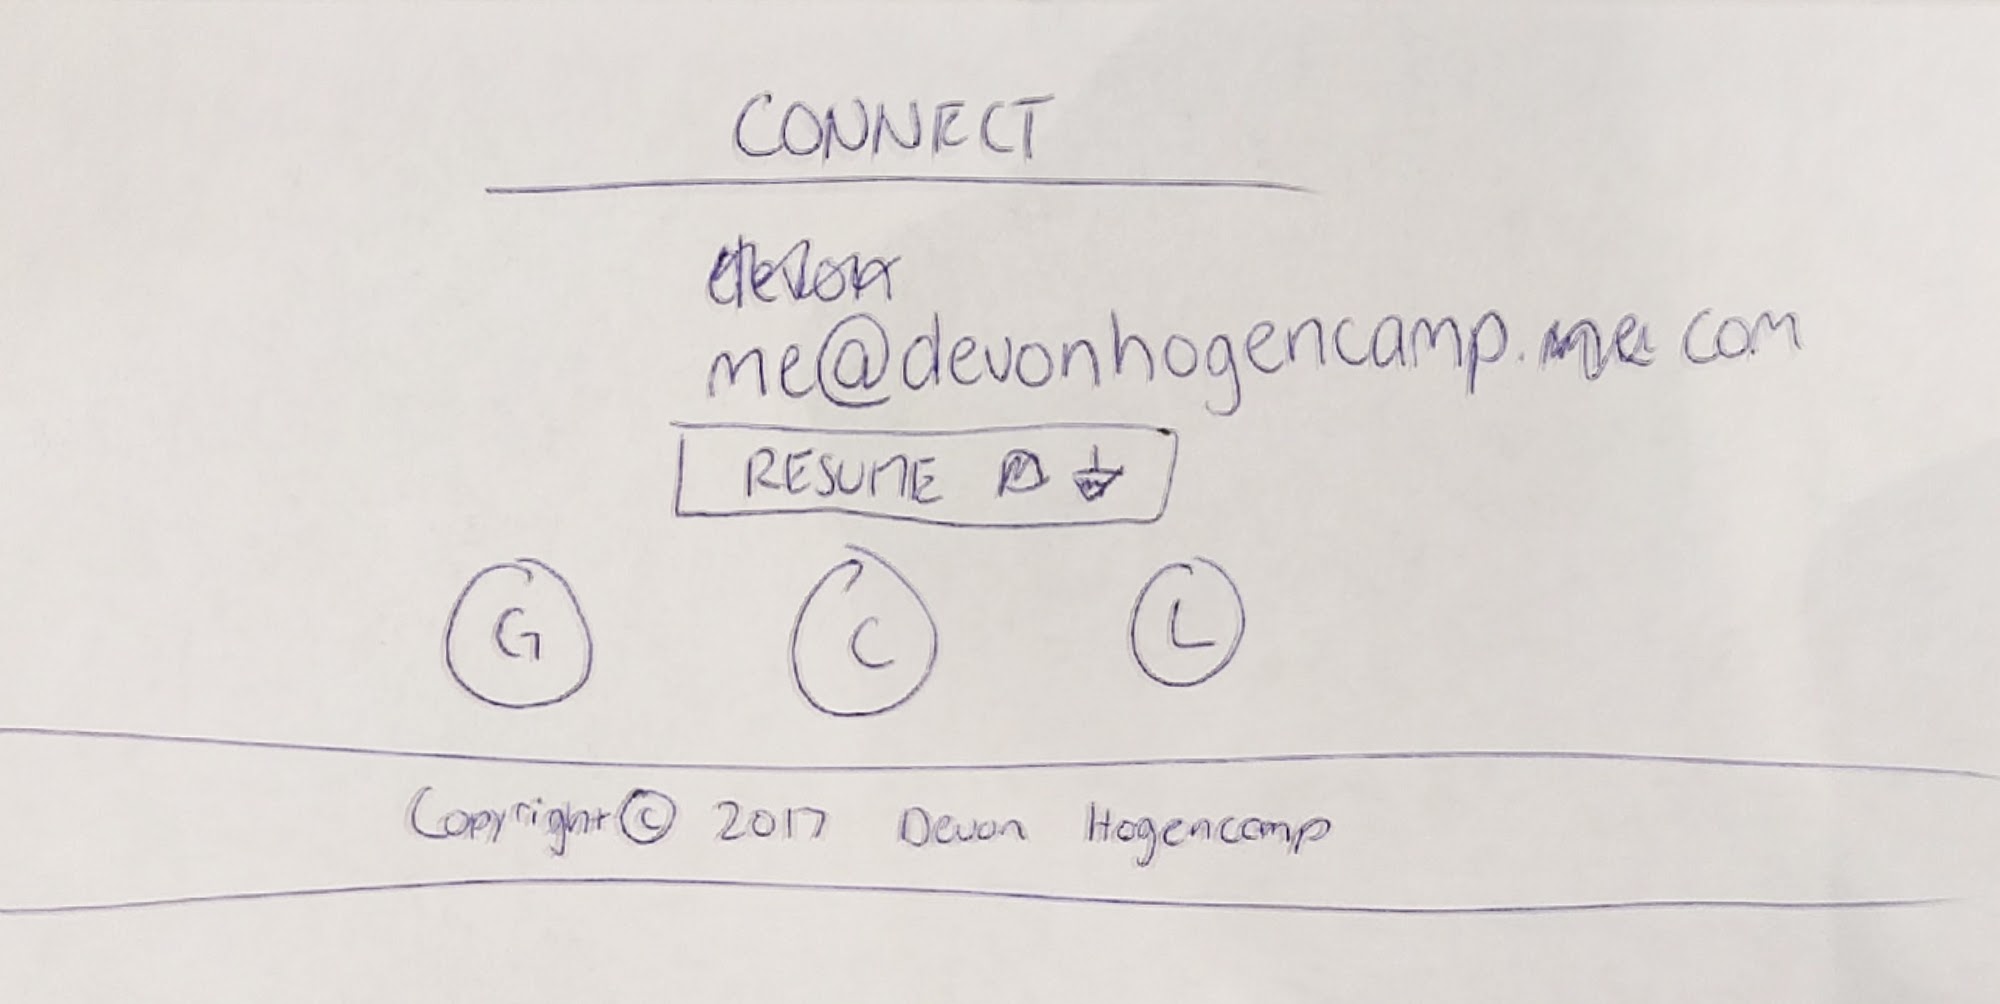 CONNECT
me@devonhogencamp.com
RESUME
G C L
Copyright © 2017 Devon Hogencamp